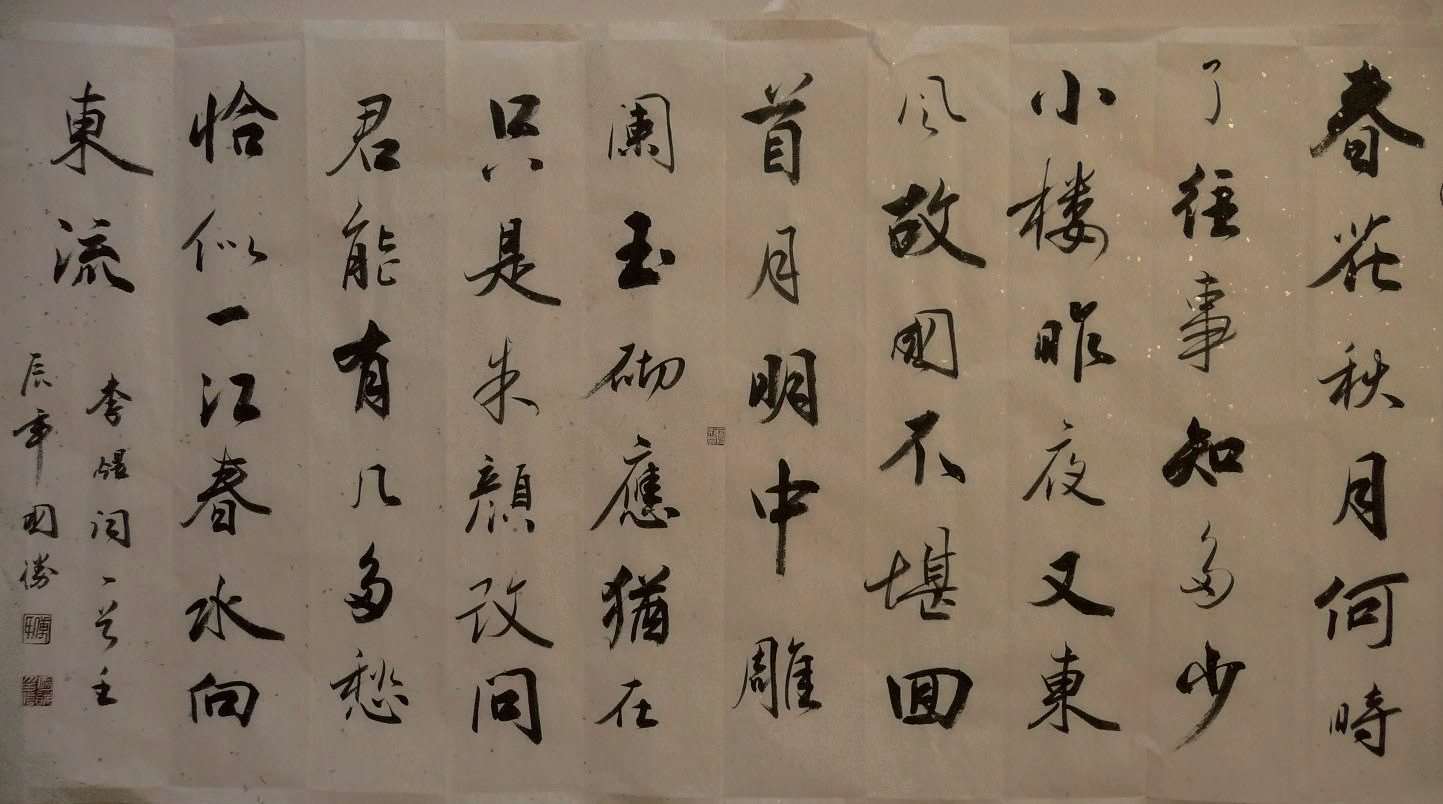 春花秋月何時
了往事知多少
小楼昨夜又東
風故國不堪回
首月明中雕
阑玉砌應猶在
只是朱顔改问
君能有几多愁
恰似一江春水向
東流
李煜词一首壬
辰年國勝